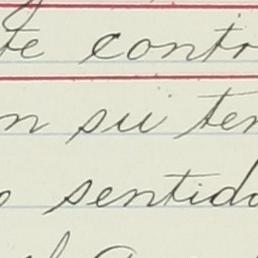 te contr
n su ter
o sentido